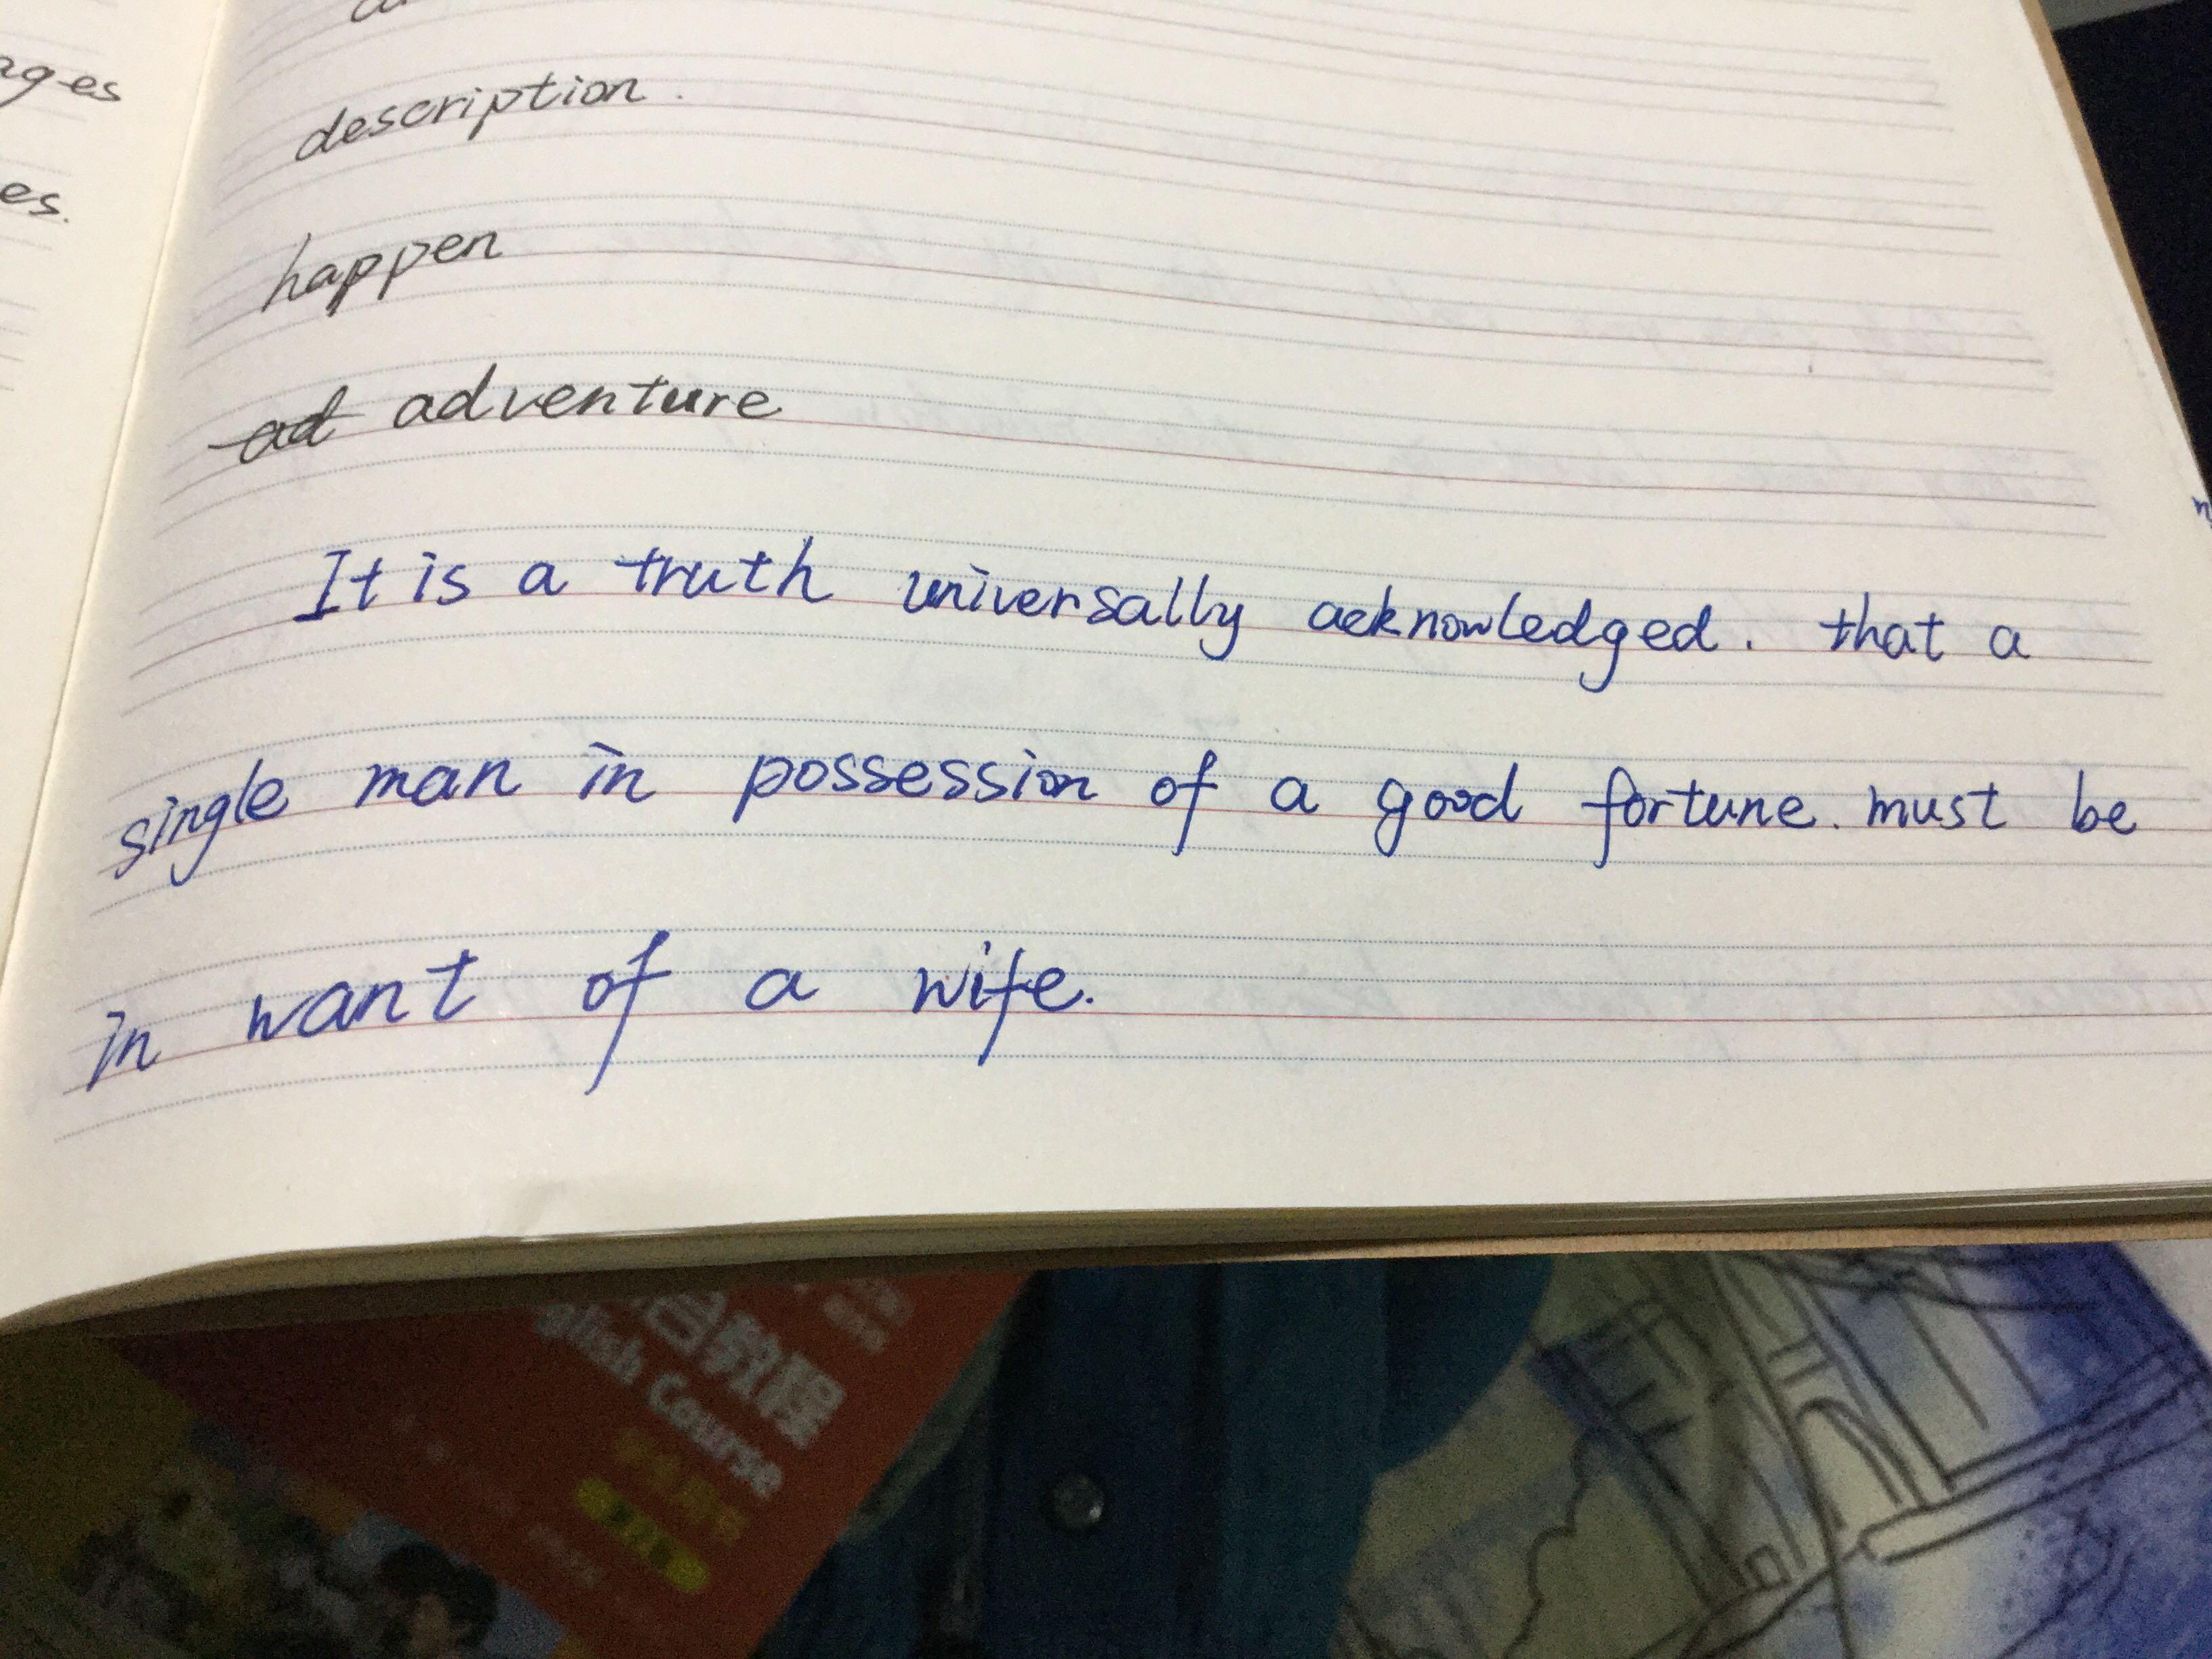 description.
happen
ad adventure
It is a truth universally acknowledged. that a
single man in possession of a good fortune. must be
in want of a wife.
教程
glish Course